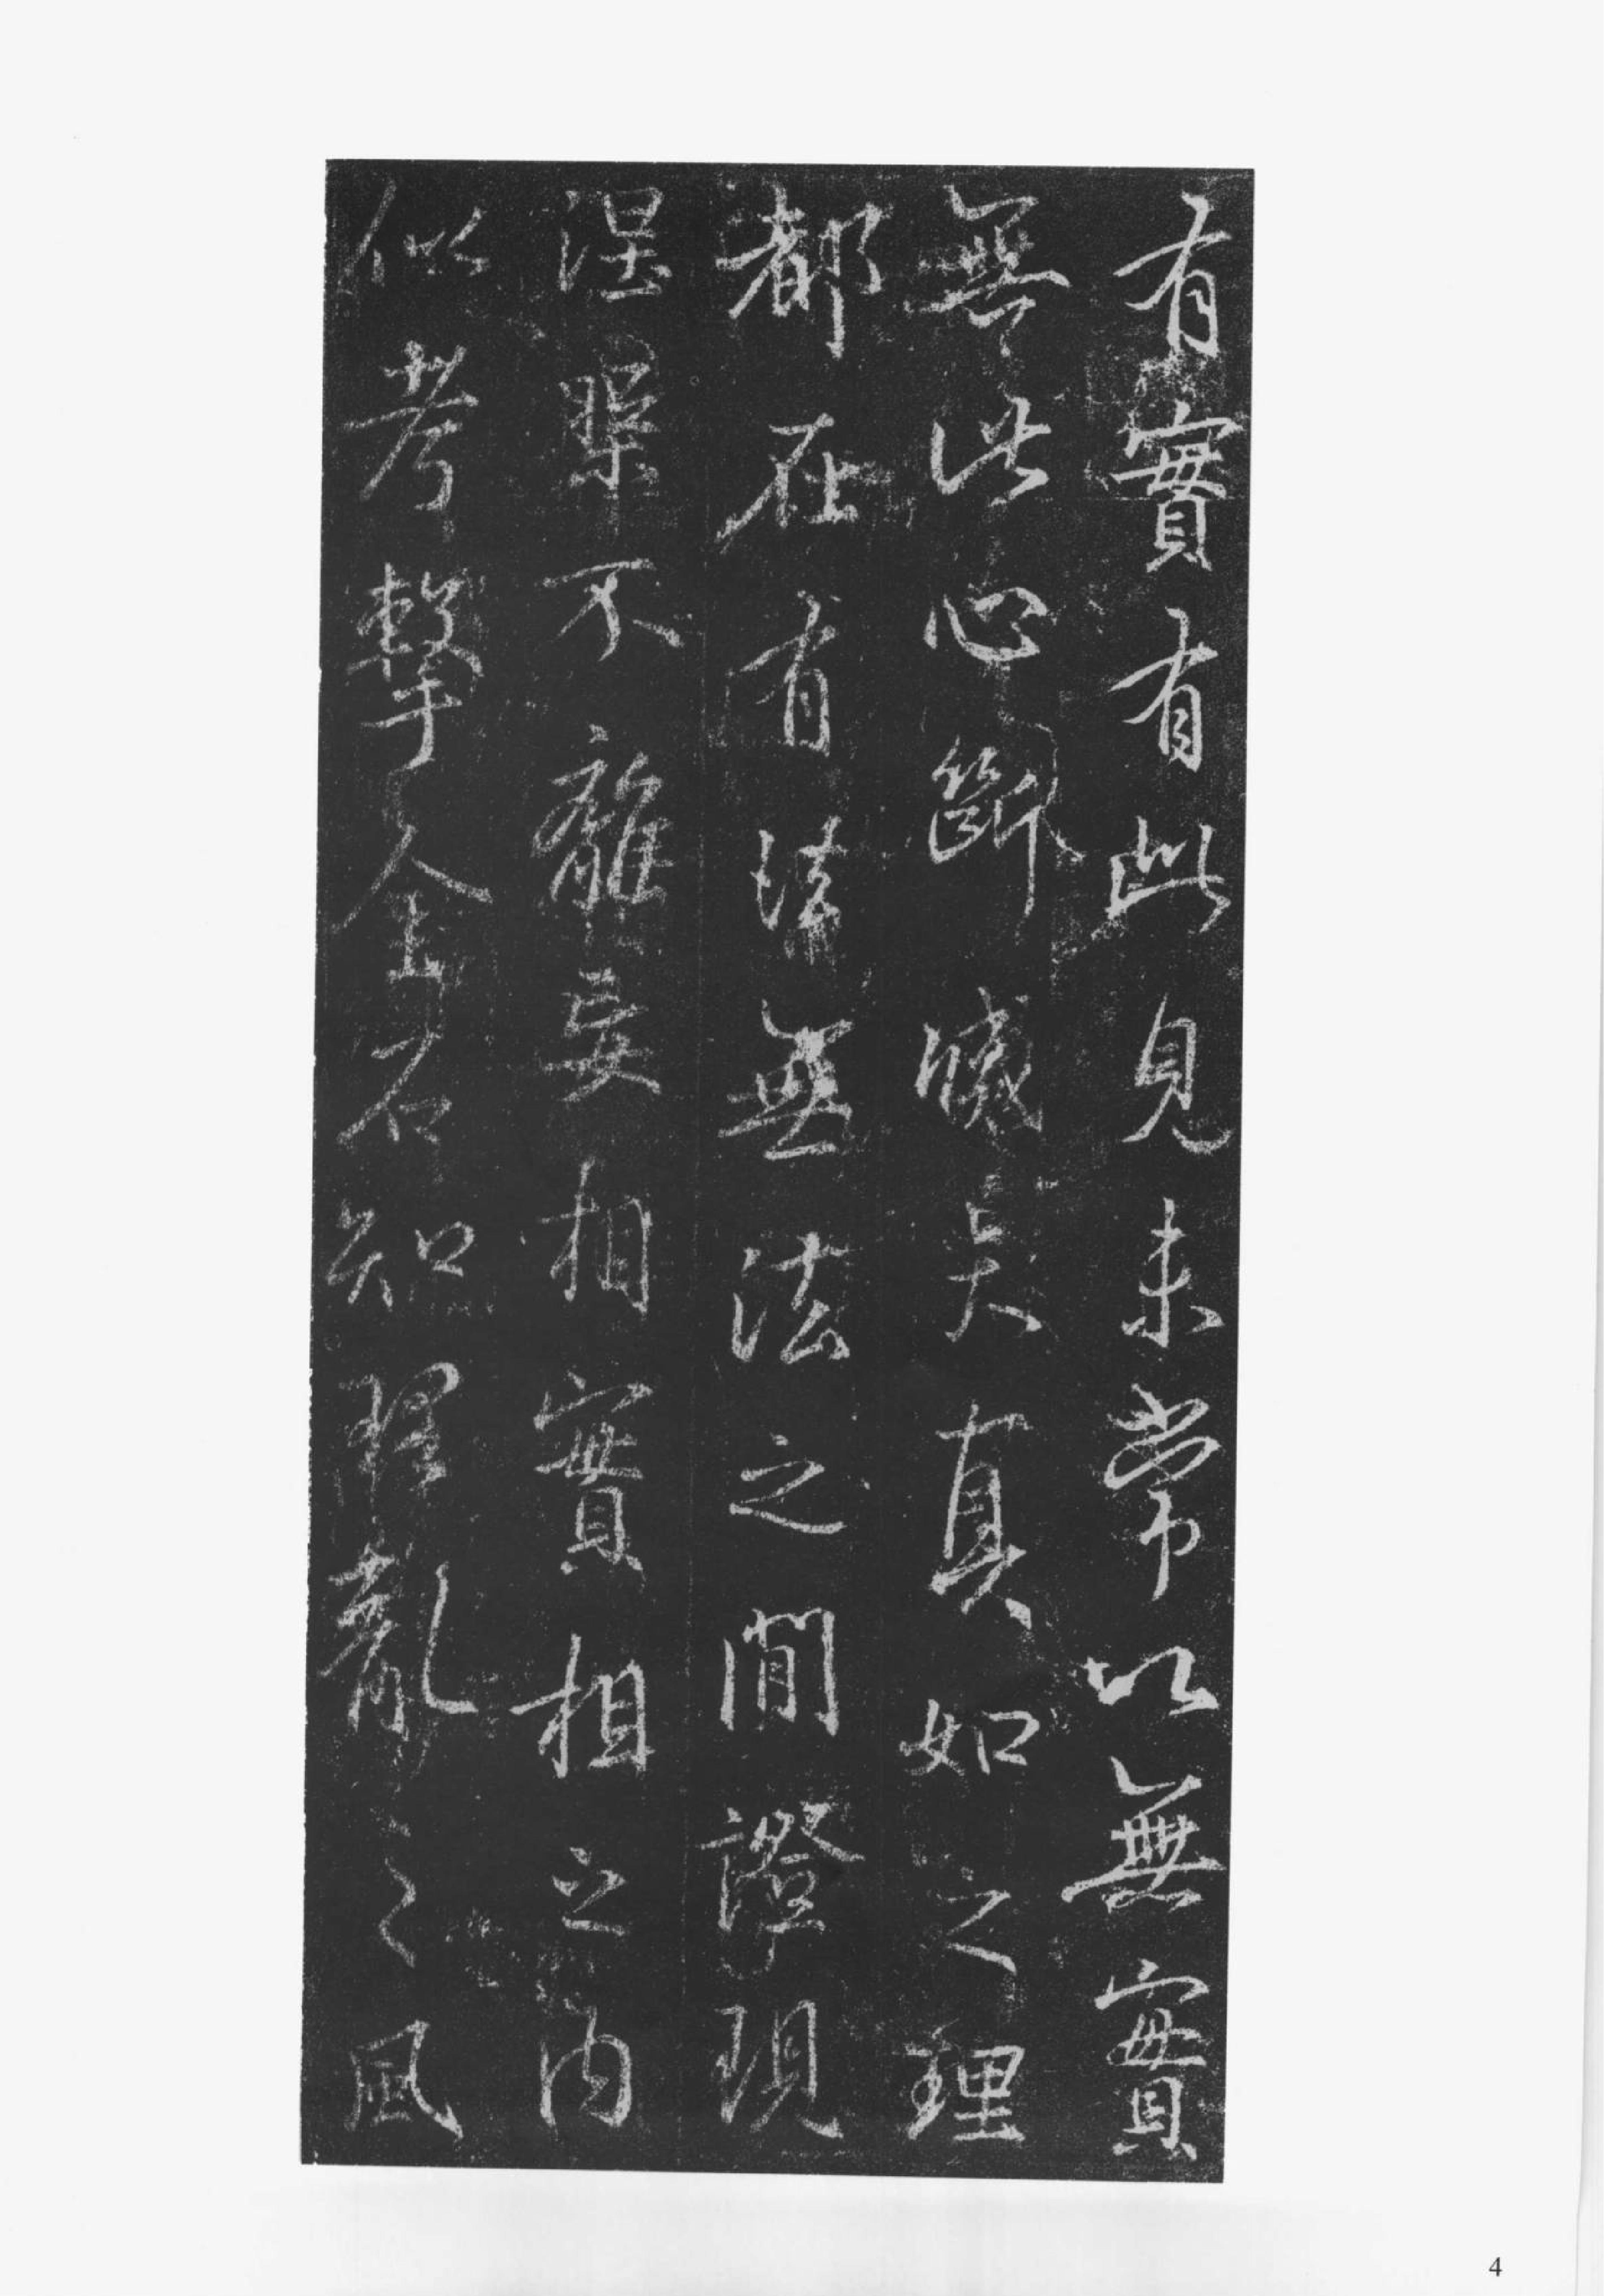 有實有此見未常以無實
無此心斷滅矣真如之理
都在有法無法之間證現
涅槃不離妄相實相之內
似考擊金石知理亂之風
4